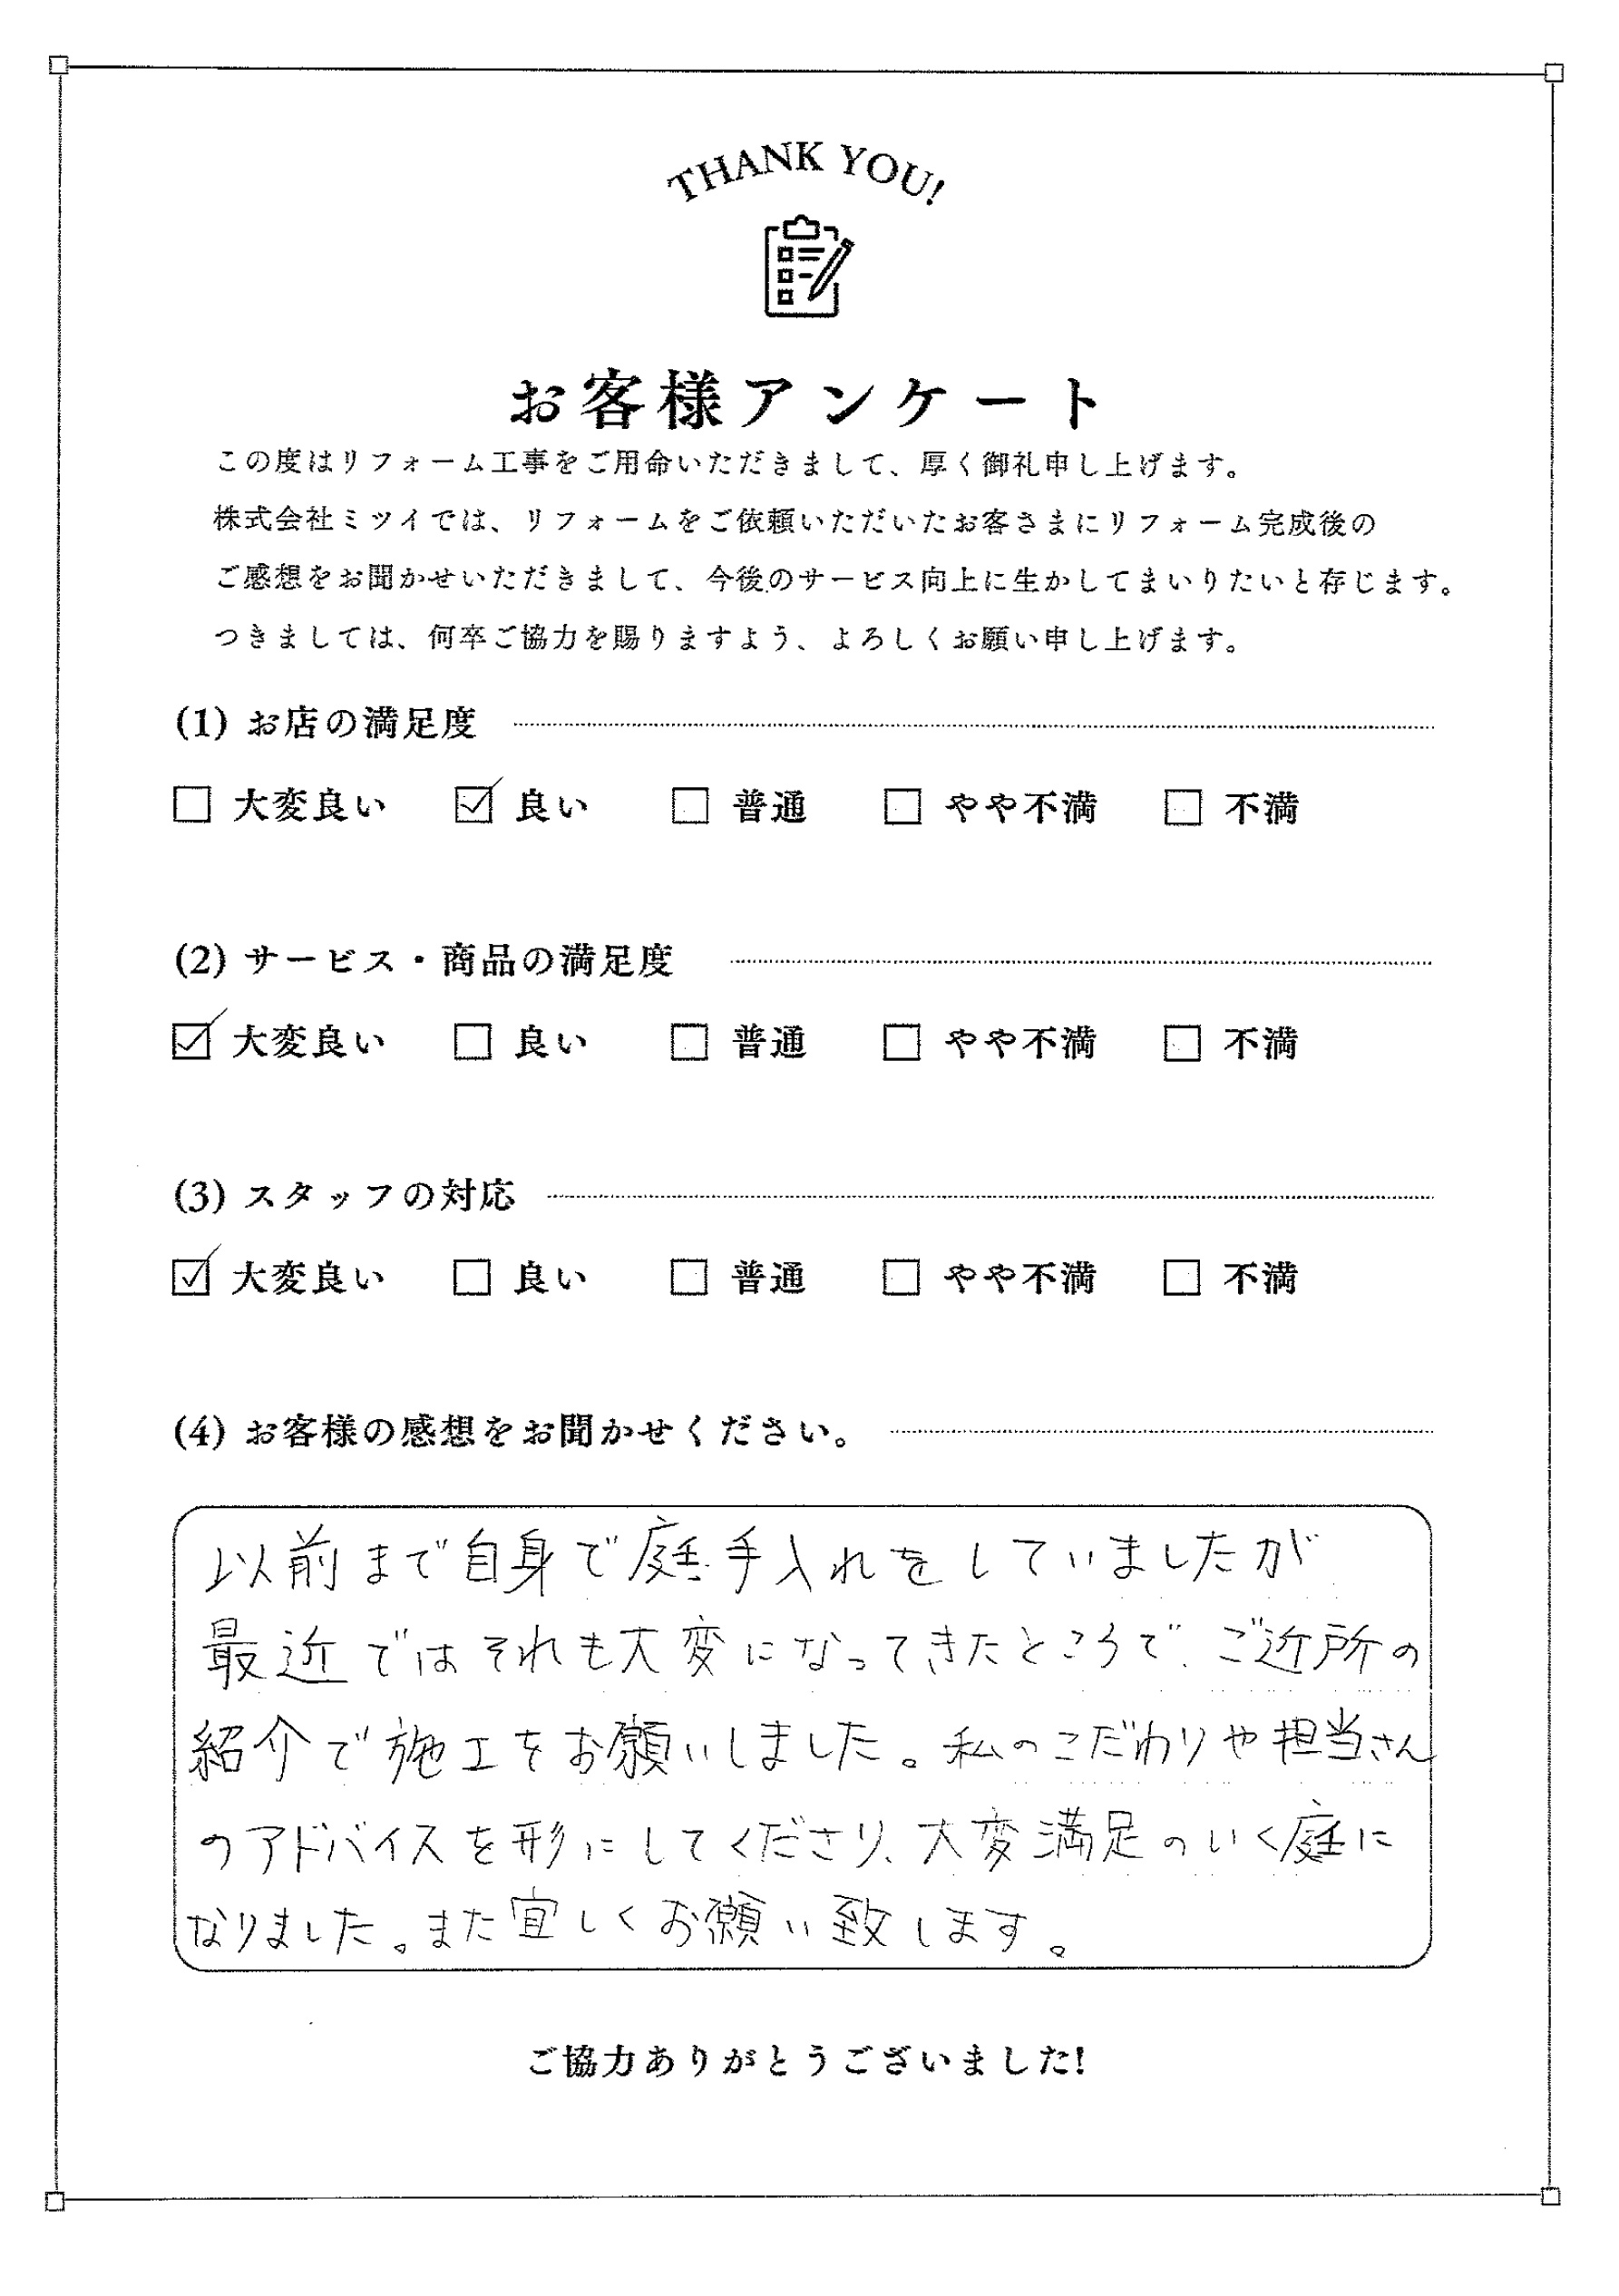 THANK YOU!
お客様アンケート
この度はリフォーム工事をご用命いただきまして、厚く御礼申し上げます。
株式会社ミツイでは、リフォームをご依頼いただいたお客さまにリフォーム完成後の
ご感想をお聞かせいただきまして、今後のサービス向上に生かしてまいりたいと存じます。
つきましては、何卒ご協力を賜りますよう、よろしくお願い申し上げます。
(1) お店の満足度
☐ 大変良い ☑ 良い ☐ 普通 ☐ やや不満 ☐ 不満
(2) サービス・商品の満足度
☑ 大変良い ☐ 良い ☐ 普通 ☐ やや不満 ☐ 不満
(3) スタッフの対応
☑ 大変良い ☐ 良い ☐ 普通 ☐ やや不満 ☐ 不満
(4) お客様の感想をお聞かせください。
以前まで自身で庭手入れをしていましたが
最近ではそれも大変になってきたところで、ご近所の
紹介で施工をお願いしました。私のこだわりや担当さん
のアドバイスを形にしてくださり、大変満足のいく庭に
なりました。また宜しくお願い致します。
ご協力ありがとうございました!